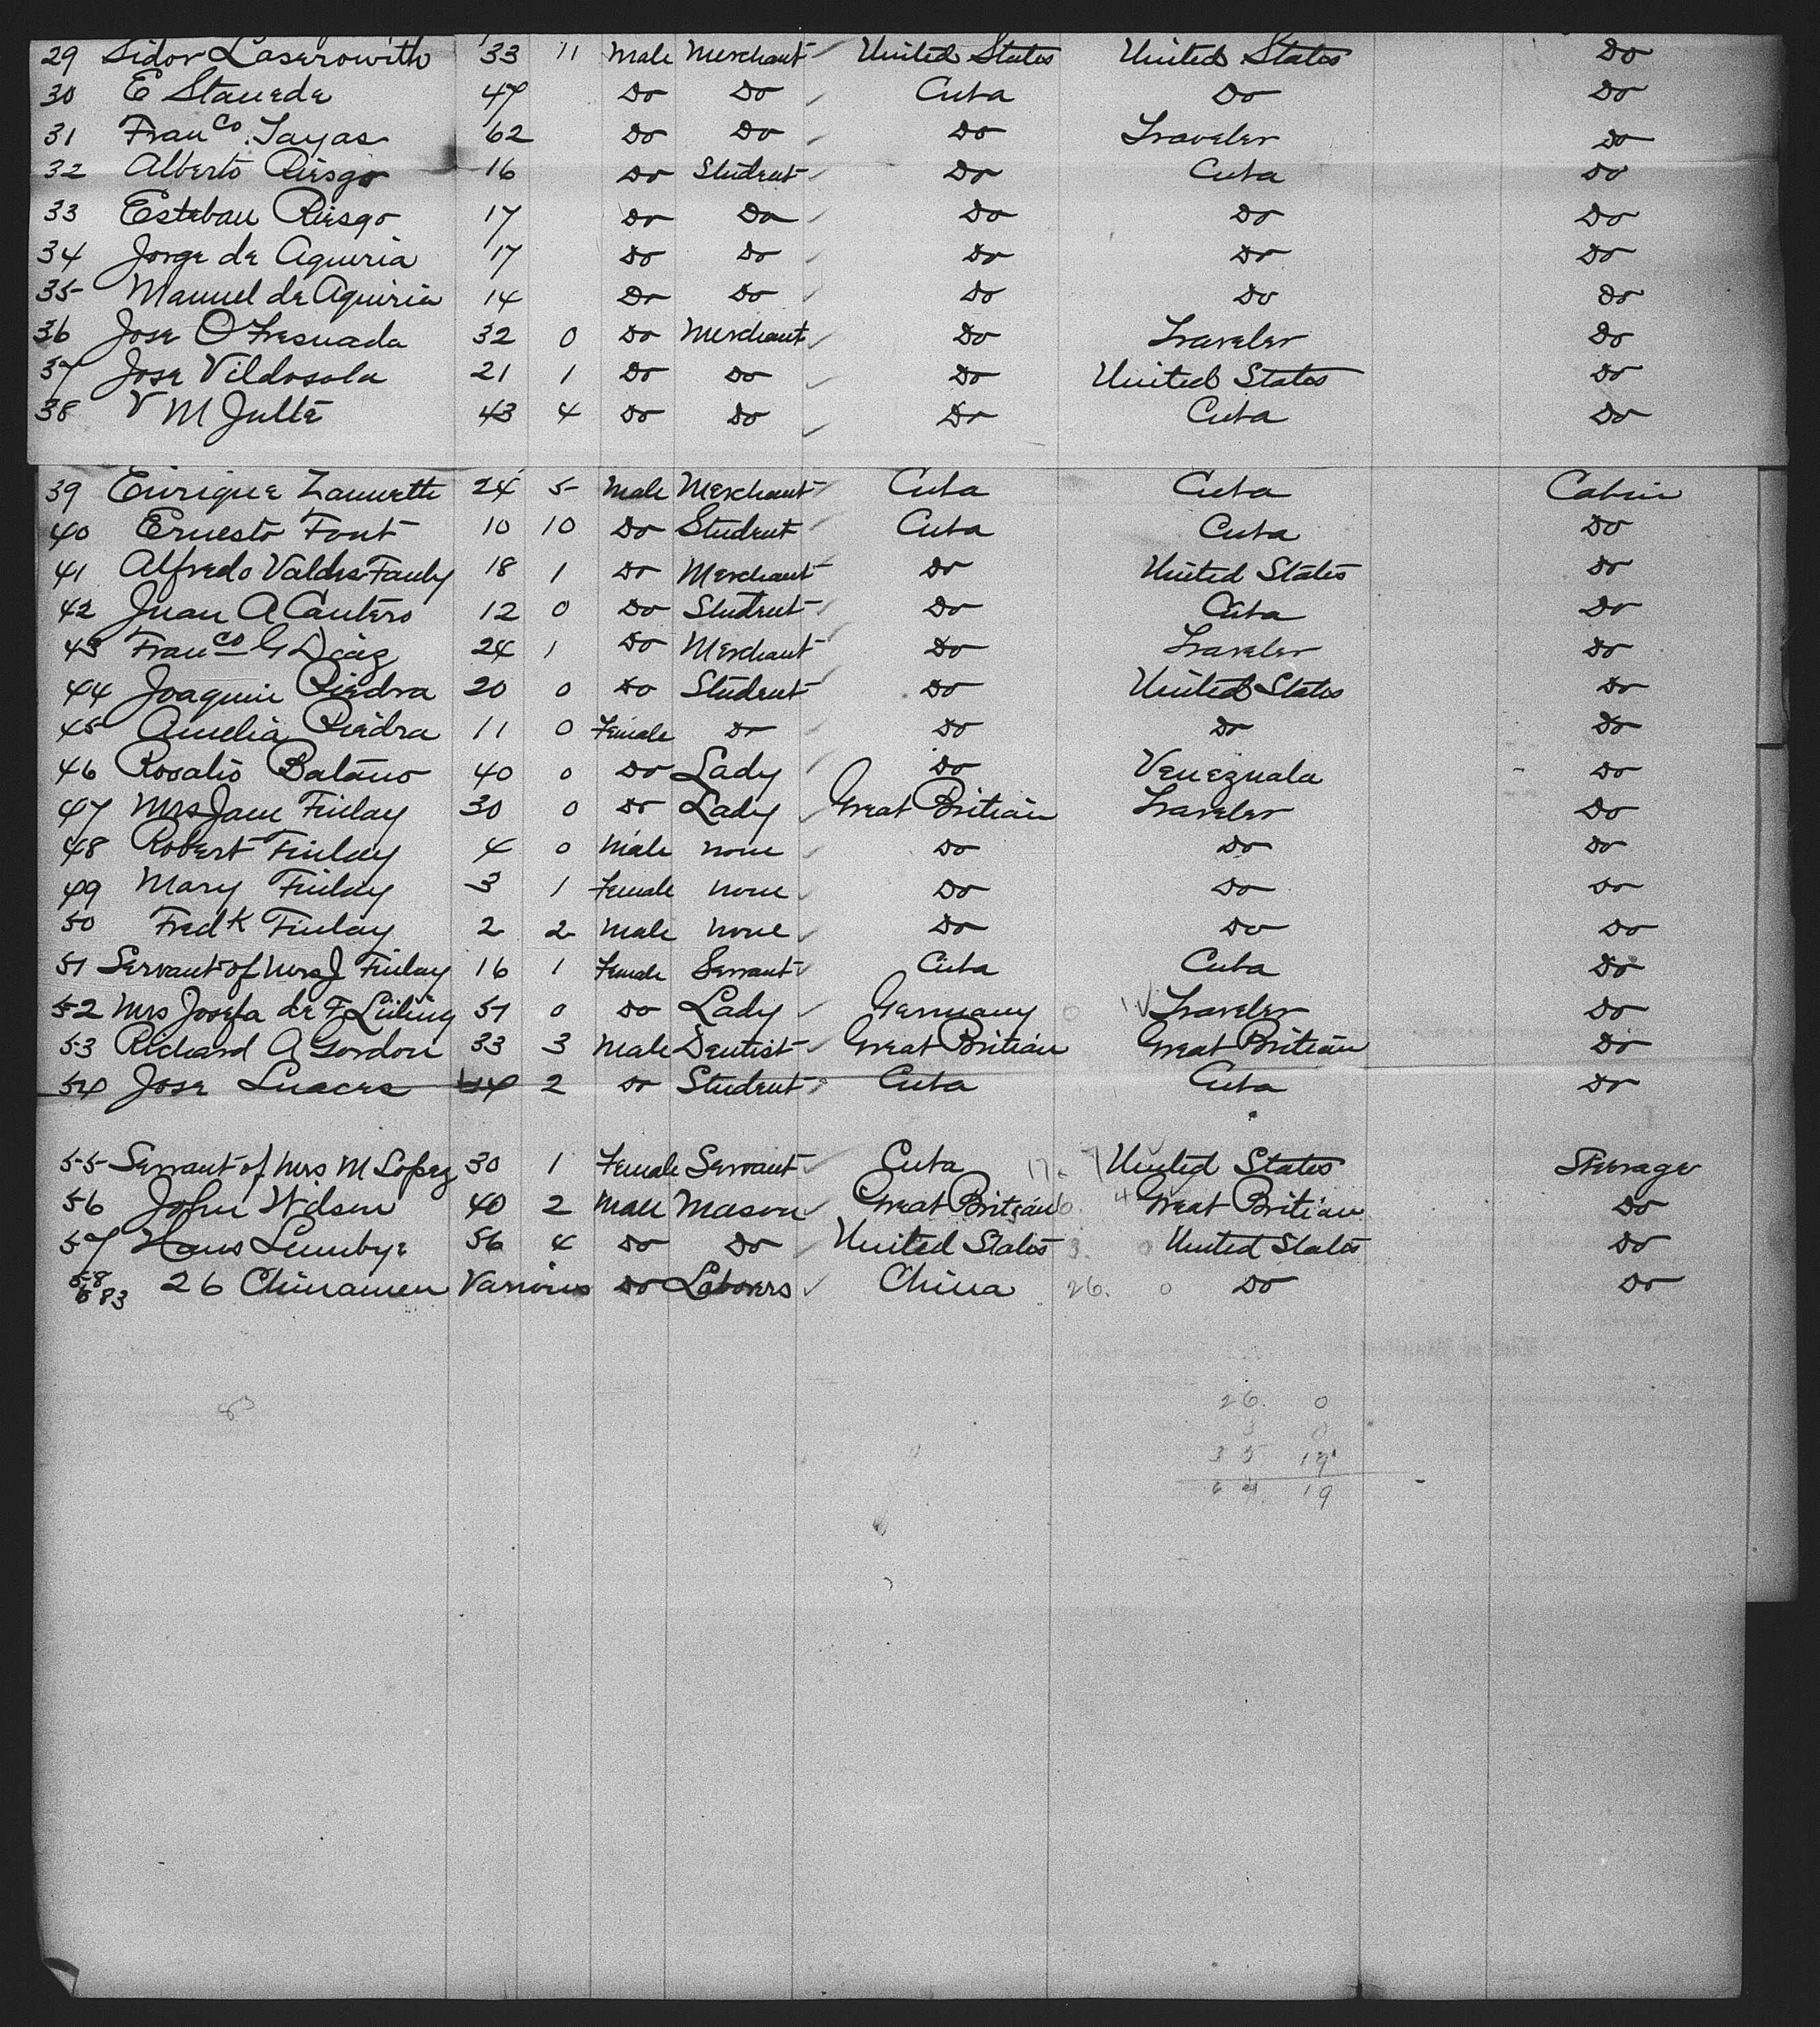 29 Sidor Laserowith 33 11 Male Merchant United States United States Do
30 E Stanede 47 Do Do Cuba Do Do
31 Fran co. Tayas 62 Do Do Do Traveler Do
32 Alberto Riesgo 16 Do Student Do Cuba Do
33 Esteban Riesgo 17 Do Do Do Do Do
34 Jorge de Aquiria 17 Do Do Do Do Do
35 Manuel de Aquiria 14 Do Do Do Do Do
36 Jose O Fresnada 32 0 Do Merchant Do Traveler Do
37 Jose Vildosola 21 1 Do Do Do United States Do
38 V M Julbe 43 4 Do Do Do Cuba Do
39 Enrique Zannetti 24 5 Male Merchant Cuba Cuba Cabin
40 Ernesto Font 10 10 Do Student Cuba Cuba Do
41 Alfredo Valdes Fauly 18 1 Do Merchant Do United States Do
42 Juan A Cantero 12 0 Do Student Do Cuba Do
43 Fran co G Diaz 24 1 Do Merchant Do Traveler Do
44 Joaquin Piedra 20 0 Do Student Do United States Do
45 Amelia Piedra 11 0 Female Do Do Do Do
46 Rosalio Batano 40 0 Do Lady Do Venezuala Do
47 Mrs Jane Finlay 30 0 Do Lady Great Britian Traveler Do
48 Robert Finlay 4 0 Male none Do Do Do
49 Mary Finlay 3 1 Female none Do Do Do
50 Fredk Finlay 2 2 Male none Do Do Do
51 Servant of Mrs J Finlay 16 1 Female Servant Cuba Cuba Do
52 Mrs Josefa de F Luling 51 0 Do Lady Germany 0 Traveler Do
53 Richard A Gordon 33 3 Male Dentist Great Britian Great Britian Do
54 Jose Luaces 14 2 Do Student Cuba Cuba Do
55 Servant of Mrs M Lopez 30 1 Female Servant Cuba 17 United States Steerage
56 John Wilson 40 2 Male Mason Great Britian 6. 4 Great Britian Do
57 Hans Lumbye 56 4 Do Do United States 3. 0 United States Do
58 83 26 Chinamen Various Do Laborers China 26. 0 Do Do
83
26. 0
3 0
35 19
64 19